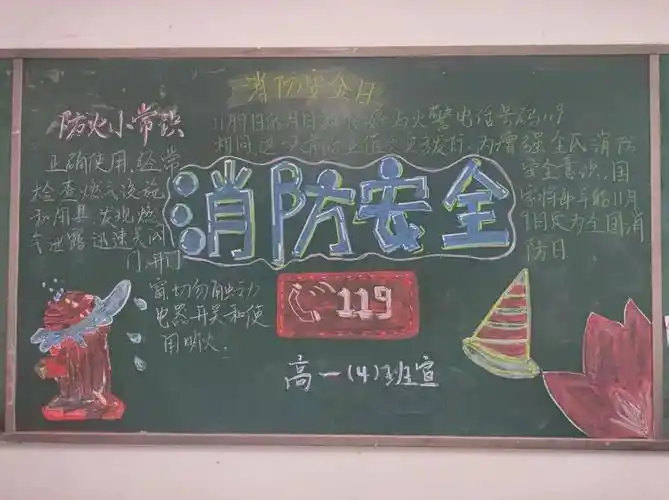 消防安全日
11月9日的月日
为火警电话号码119
相同,这一天前
为增强全民消防
安全意识,国
家将每年的11月
9日定为全国消
防日
防火小常识
正确使用,经常
检查燃气设施
和用具,发现燃
气泄露迅速关闭
门,开门
窗,切勿触动
电器开关和使
用明火.
消防安全
119
高一(4)班宣